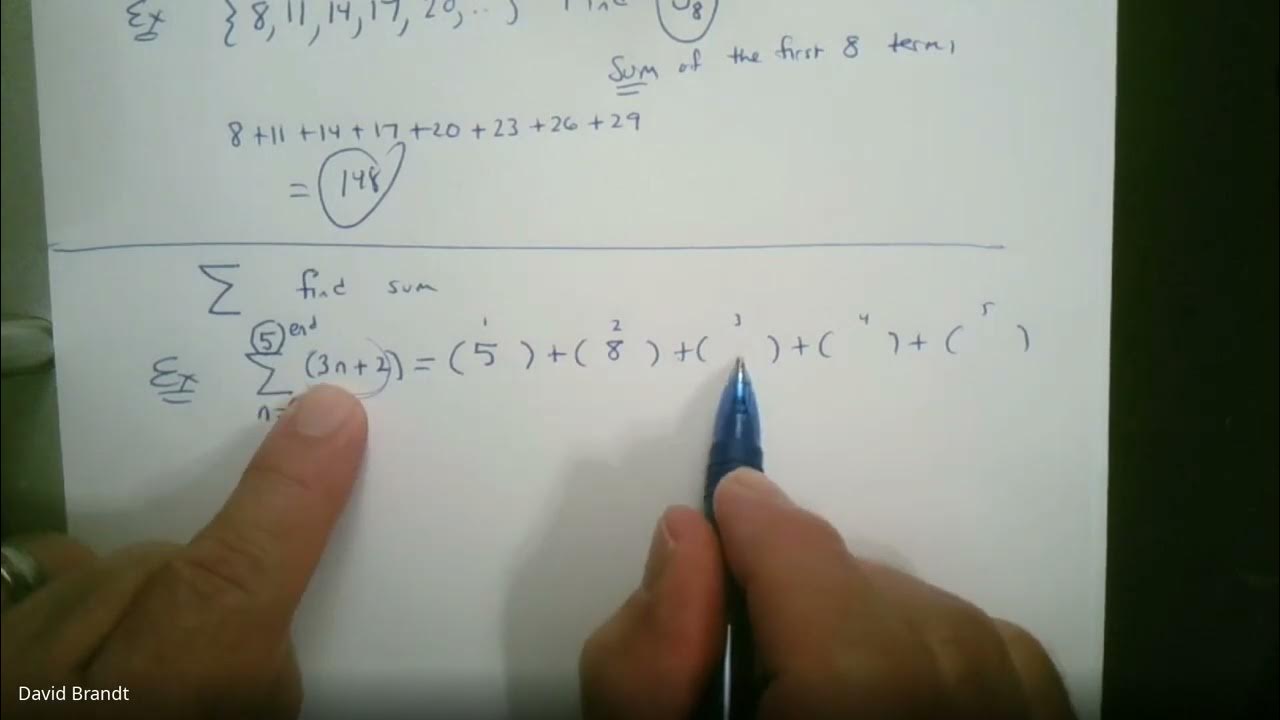 Ex {8, 11, 14, 17, 20, ...} Find S8
Sum of the first 8 terms
8 + 11 + 14 + 17 + 20 + 23 + 26 + 29
= 148
Σ find sum
1 2 3 4 5
5 end
Ex Σ (3n + 2) = ( 5 ) + ( 8 ) + ( ) + ( ) + ( )
n =
David Brandt